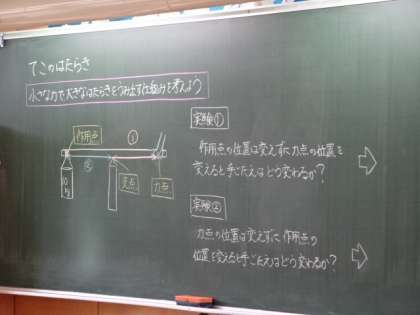 てこのはたらき
小さな力で大きなはたらきをうみ出す仕組みを考えよう
作用点
①
②
支点
力点
10
kg
実験①
作用点の位置は変えずに力点の位置を
変えると手ごたえはどう変わるか？
実験②
力点の位置は変えずに作用点の
位置を変えると手ごたえはどう変わるか？